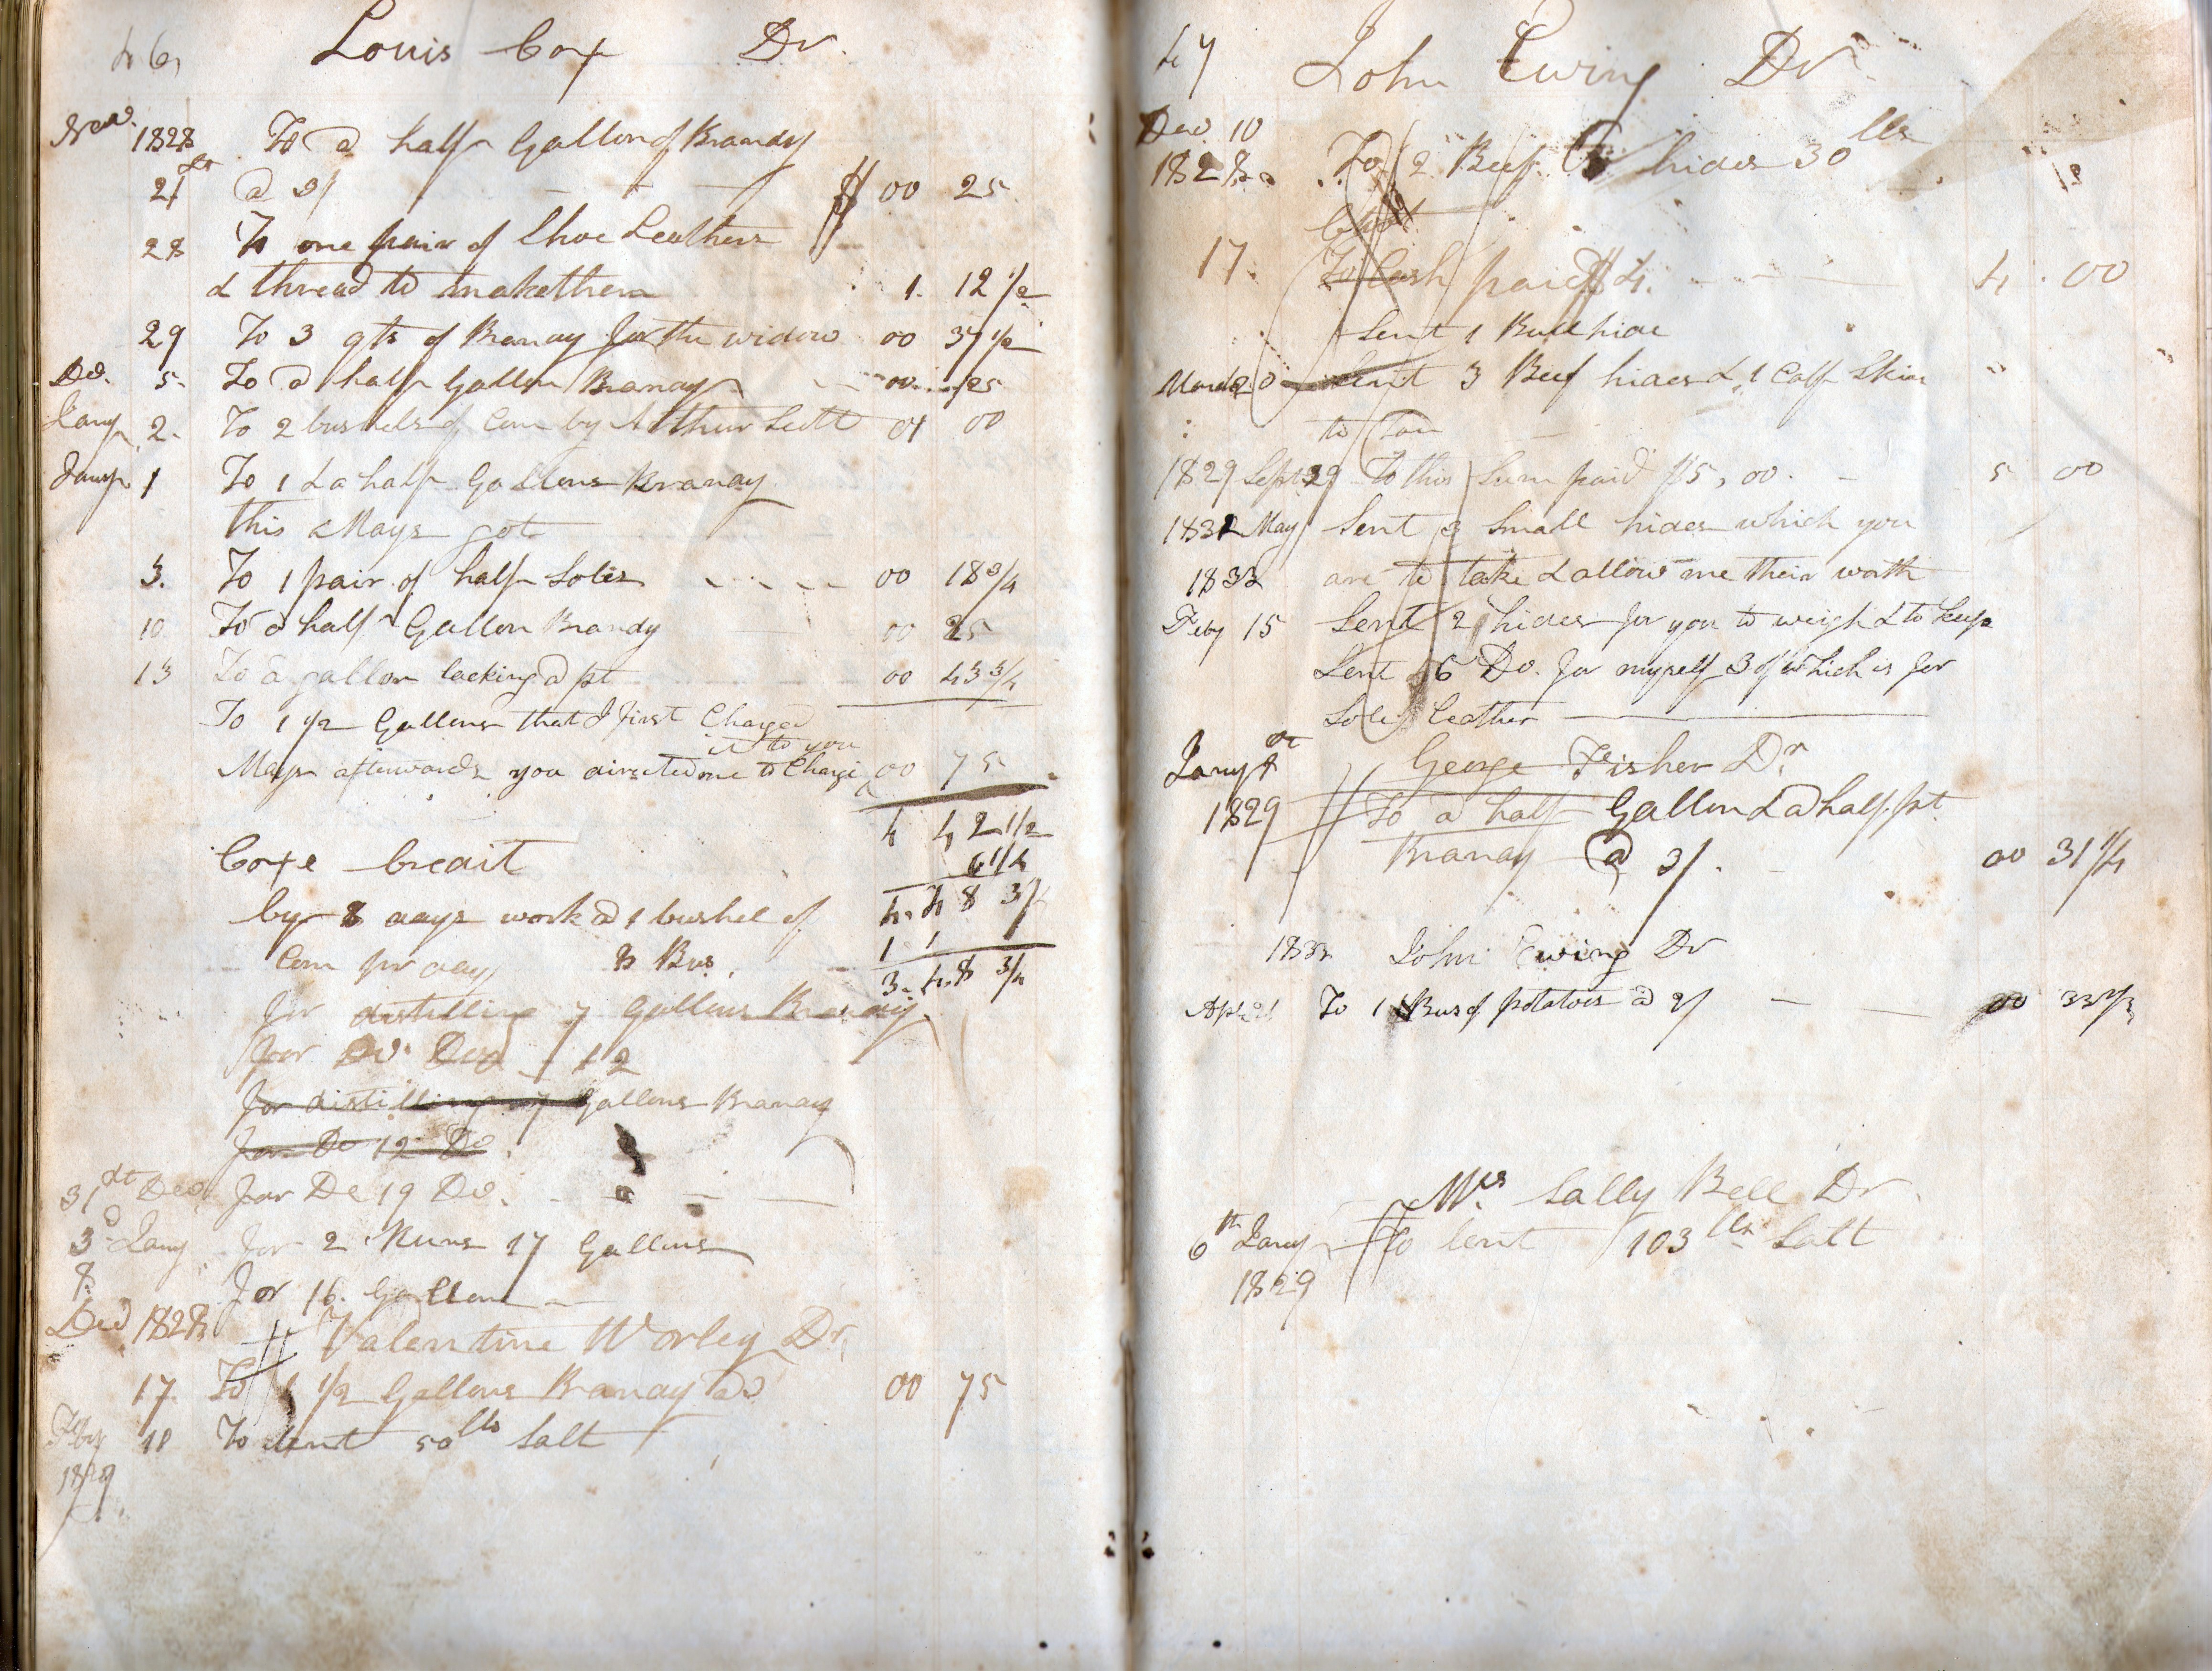 46
Louis Cox Dr.
Nov. 1828 To a half Gallon of Brandy
21st @ 3/ $ 00 25
28 To one pair of Shoe Leathers
& thread to make them 1. 12 1/2
29 To 3 qts of Brandy for the widow 00 37 1/2
De. 5 To a half Gallon Brandy 00 25
Jany 2. To 2 bushels of Corn by Arthur Scott 01 00
Jany 1 To 1 & a half Gallons Brandy
this Mays got
3. To 1 pair of half Soles 00 18 3/4
10 To a half Gallon Brandy 00 25
13 To a gallon lacking a pt 00 43 3/4
To 1 1/2 Gallons that I first Charged
it to you
Mays afterwards you directed me to Charge 00 75
4 42 1/2
Coxe Credit 6 1/4
by 8 days work @ 1 bushel of 4. 48 3/4
Corn pr day 8 Bus. 1
3. 48 3/4
for distilling 7 Gallons Brandy
for Do. Do 12
for distilling 7 Gallons Brandy
for Do 12 Do
31st Dec. for De 19 Do.
3d Jany for 2 Runs 17 Gallons
8. for 16 Gallons
Decd 1828 Valentine Worley Dr.
17 To 1 1/2 Gallons Brandy 00 75
Feby 18 To lent 50 lbs Salt
1829
47
John Ewing Dr
Dec. 10
1828. To 2 Beef hides 30 lbs
17. To Cash paid $4. 4. 00
Sent 1 Bull hide
March 20 Sent 3 Beef hides & 1 Calf Skin
to Tan
1829 Sept 29 To this Sum paid $5,00. 5 00
1832 May Sent 3 Small hides which you
are to take & allow me their worth
1833
Feby 15 Sent 2 hides for you to weigh & to keep
Sent 6 Do. for myself 3 of which is for
Sole leather
Jany
George Fisher Dr
1829 To a half Gallon & a half pt.
Brandy @ 3/. 00 31 1/4
1833 John Ewing Dr
Apl 21 To 1 Bus of potatoes @ 2/ 00 33 1/3
Mrs Sally Bell Dr.
6th Jany To lent 103 lbs Salt
1829